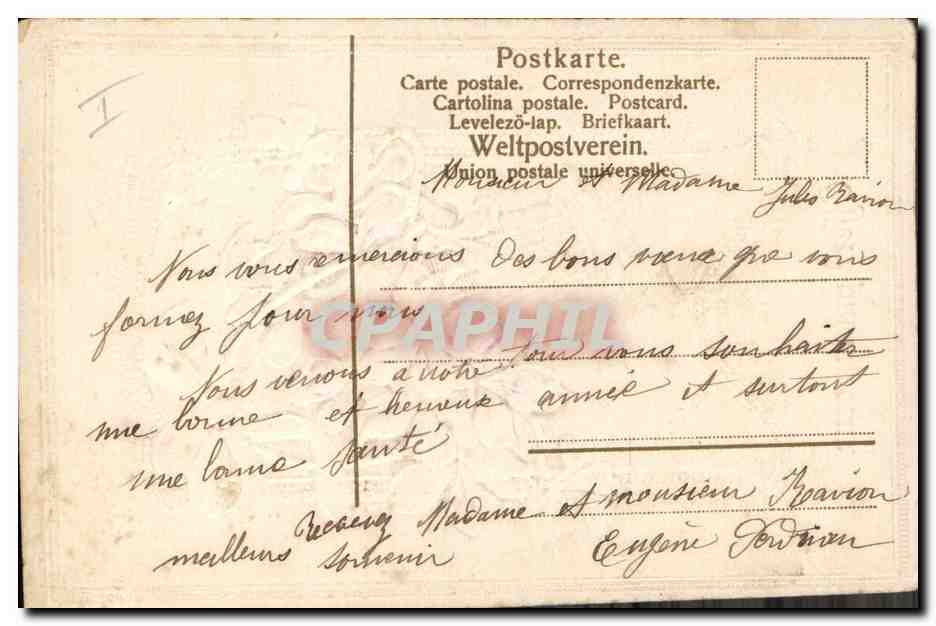 I
Postkarte.
Carte postale. Correspondenzkarte.
Cartolina postale. Postcard.
Levelezö-lap. Briefkaart.
Weltpostverein.
Union postale universelle.
Monsieur et Madame Jules Ravion
Nous vous remercions des bons voeux que vous
formez pour nous
CPAPHIL
Nous venons a notre tour vous souhaiter
une bonne et heureuse année et surtout
une bonne santé
Recevez Madame et monsieur Ravion
meilleurs souvenir Eugène